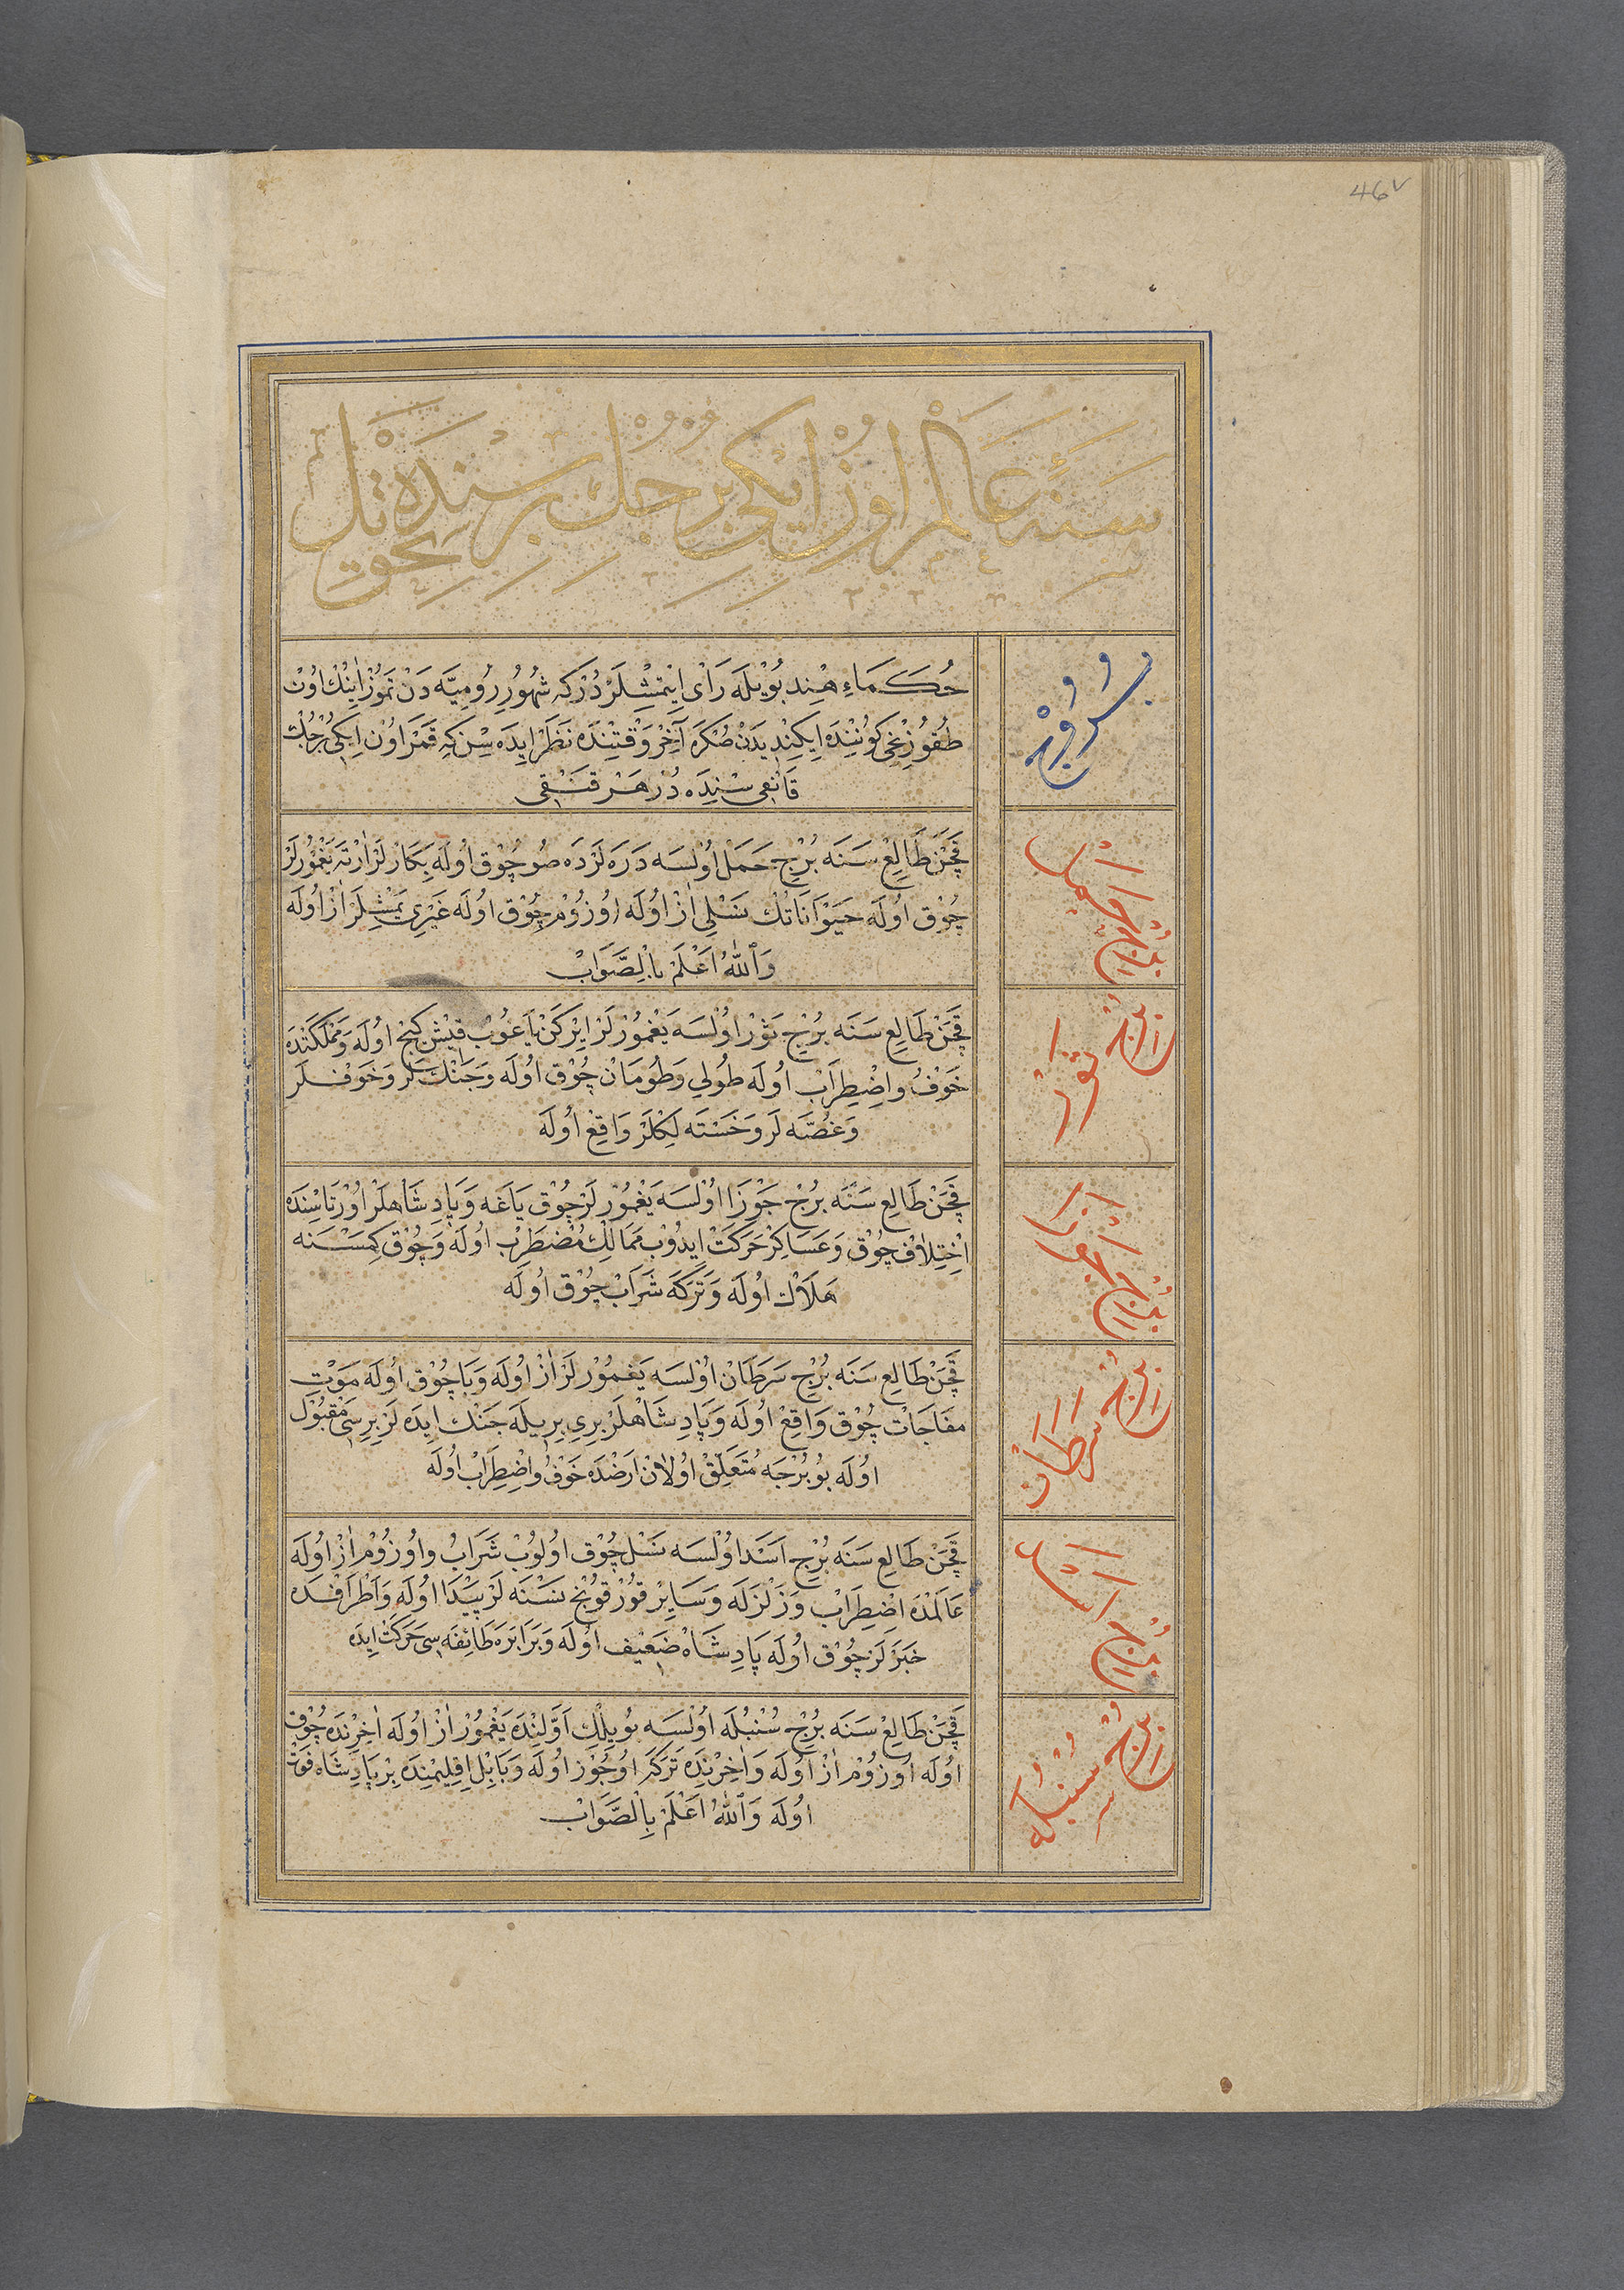 46v
سنهٔ عالم اون ایکی برجك برسنده تحویل
حُكَمَاءِ هِنْد بُوْیْلَه رَأْیْ اِیْتمِشْلَرْدُرْ كِه شُهُورِ رُومِیَّه دَنْ تَمُوزْ اٰیِنْكْ اوُنْ
طُقُوزِنْجِی كُونِنْدَه اِیكِنْدِیدَنْ صُكْرَه آخِرْ وَقْتِنْدَه نَظَرْ ایدَه سِنْ كِه قَمَرْ اوُن اِیكِی بُرْجُكْ
قَانْغِی سِنْدَه دُرْ هَرْ قَنْقِی
قَچَنْ طَالِعِ سَنَه بُرْجِ حَمَلْ اوُلْسَه دَرَه لَرْدَه صُو چُوْق اوُلَه بِكَارْلَرْ اَرْتَه یَغْمُورْلَرْ
چُوْق اوُلَه حَیَوَانَاتُكْ نَسْلِی اٰزْ اوُلَه اوُزوُمْ چُوْق اوُلَه غَیْرِی یَمِشْلَرْ اٰزْ اوُلَه
وَاللّٰهُ اَعْلَمْ بِالصَّوَابْ
برج ثور
قَچَنْ طَالِعِ سَنَه بُرْجِ ثَوْرْ اوُلْسَه یَغْمُورْلَرْ اِیرْكَنْ یَاغُوبْ قِیْشْ كِیجْ اوُلَه وَمَمْلَكَتْدَه
خَوْفُ واِضْطِرَابْ اوُلَه طُولِی وَطُومَانْ چُوْق اوُلَه وَجَنْك لَر وَخَوْفْلَر
وَغُصَّه لَر وَخَسْتَه لِكْلَرْ وَاقِعْ اوُلَه
قَچَنْ طَالِعِ سَنَه بُرْجِ جَوْزَا اوُلْسَه یَغْمُورْلَرْ چُوْق یَاغَه وَپَادِشَاهْلَرْ اوُرْتَاسِنْدَه
اِخْتِلَافْ چُوْق وَعَسَاكِرْ حَرَكَتْ اِیدُوْبْ مَمَالِكْ مُضْطَرِبْ اوُلَه وَچُوْق كِمَسْنَه
هَلَاكْ اوُلَه وَتَرَكَه شَرَابْ چُوْق اوُلَه
برج سرطان
قَچَنْ طَالِعِ سَنَه بُرْجِ سَرَطَانْ اوُلْسَه یَغْمُوْرلَرْ اٰزْ اوُلَه وَبَا چُوْق اوُلَه مَوْتِ
مفَاجَاتْ چُوْق وَاقِعْ اوُلَه وَپَادِشَاهْلَرْ بِرِی بِرِیلَه جَنْك اِیدَه لَرْ بِرِیسِی مَقْبُوْل
اوُلَه بُو بُرْجَه مُتَعَلِّقْ اوُلَانْ اَرْضْدَه خَوْفُ واِضْطِرَابْ اوُلَه
قَچَنْ طَالِعِ سَنَه بُرْجِ اَسَدْ اوُلْسَه نَسْل چُوْق اوُلُوبْ شَرَابْ واوُزوُمْ اٰزْ اوُلَه
عَالَمْدَه اِضْطِرَابْ وَزَلْزَلَه وَسَایِرْ قُوْرْقُوْنْج نَسْنَه لَرْ پَیْدَا اوُلَه وَاَطْرَافْدَه
خَبَرْلَرْ چُوْق اوُلَه پَادِشَاهْ ضَعِیف اوُلَه وَبَرَابَرَه طَائِفَه سِی حَرَكَتْ ایدَه
برج سنبله
قَچَنْ طَالِعِ سَنَه بُرْجِ سُنْبُلَه اوُلْسَه بُو یِلْكْ اَوَّلِنْدَه یَغْمُورْ اٰزْ اوُلَه اٰخِرِنْدَه چُوْق
اوُلَه اوُزوُمْ اٰزْ اوُلَه وَاٰخِرِنْدَه تَرَكَه اوُجُوْز اوُلَه وَبَابِلْ اِقْلِیمِنْدَه بِرْ پَادِشَاه فَوْتْ
اوُلَه وَاللّٰهُ اَعْلَمْ بِالصَّوَابْ